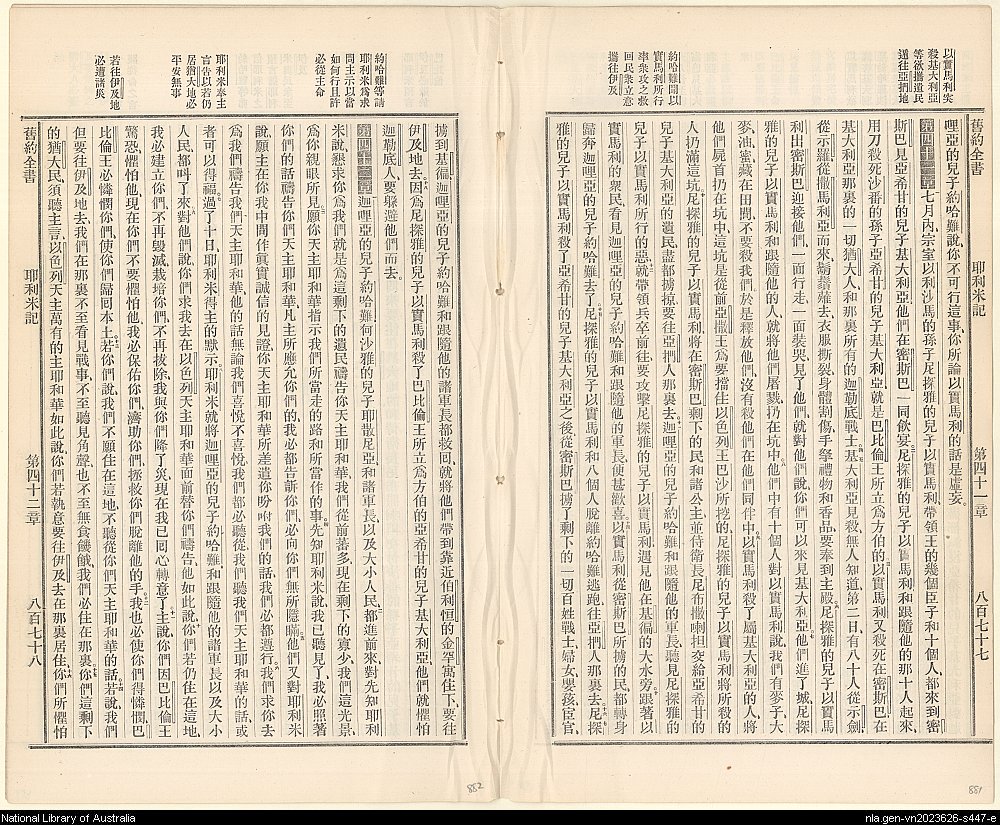 以實馬利突
殺基大利亞
等欲攜遺民
逃往亞捫地
約哈難聞以
實馬利所行
率衆攻之救
回民衆立意
攜往伊及
舊約全書 耶利米記 第四十一章 八百七十七
哩亞的兒子約哈難說、你不可行這事、你所論以實馬利的話是虛妄。
第四十一章 七月內宗室以利沙馬的孫子尼探雅的兒子以實馬利、帶領王的幾個臣子和十個人、都來到密
斯巴見亞希甘的兒子基大利亞、他們在密斯巴一同飲宴、尼探雅的兒子以實馬利和跟隨他的那十人起來、
用刀殺死沙番的孫子亞希甘的兒子基大利亞、就是巴比倫王所立爲方伯的、以實馬利又殺死在密斯巴在
基大利亞那裏的一切猶大人、和那裏所有的迦勒底戰士、基大利亞見殺無人知道、第二日有八十人從示劍
從示羅從撒馬利亞而來、鬍鬚薙去、衣服撕裂、身體割傷、手拏禮物和香品、要奉到主殿、尼探雅的兒子以實馬
利出密斯巴迎接他們、一面行走、一面裝哭、見了他們就對他們說、你們可以來見基大利亞、他們進了城、尼探
雅的兒子以實馬利和跟隨他的人、就將他們屠戮、扔在坑中、他們中有十個人對以實馬利說、我們有麥子大
麥油蜜藏在田間、不要殺我們、於是釋放他們、沒有殺他們在他們同伴中、以實馬利殺了屬基大利亞的人、將
他們屍首扔在坑中、這坑是從前亞撒王爲要擋住以色列王巴沙所挖的、尼探雅的兒子以實馬利將所殺的
人扔滿這坑、尼探雅的兒子以實馬利、將在密斯巴剩下的民和諸公主、並侍衛長尼布撒喇担交給亞希甘的
兒子基大利亞的遺民、盡都擄掠、要往亞捫人那裏去、迦哩亞的兒子約哈難和跟隨他的軍長、聽見尼探雅的
兒子以實馬利所行的惡、就帶領兵卒前往、要攻擊尼探雅的兒子以實馬利、遇見他在基徧的大水旁、跟著以
實馬利的衆民、看見迦哩亞的兒子約哈難和跟隨他的軍長、便甚歡喜、以實馬利從密斯巴所擄的民、都轉身
歸奔迦哩亞的兒子約哈難去了、尼探雅的兒子以實馬利和八個人脫離約哈難、逃跑往亞捫人那裏去、尼探
雅的兒子以實馬利殺了亞希甘的兒子基大利亞之後、從密斯巴擄了剩下的一切百姓、戰士婦女嬰孩臣官、
約哈難等請
耶利米爲求
問主示以當
如何行且許
必從主命
耶利米奉主
旨告以若仍
居猶大地必
平安無事
若往伊及地
必遭諸災
擄到基徧、迦哩亞的兒子約哈難和跟隨他的諸軍長都救回、就將他們帶到靠近伯利恒的金罕寓住下、要往
伊及地去、因爲尼探雅的兒子以實馬利、殺了巴比倫王所立爲方伯的亞希甘的兒子基大利亞、他們就懼怕
迦勒底人、要躱避他們而去。
第四十二章 迦哩亞的兒子約哈難、何沙雅的兒子耶撒尼亞、和諸軍長、以及大小人民、都進前來、對先知耶利
米說、懇求你爲我們、就是爲這剩下的遺民、禱告你天主耶和華、我們從前蕃多、現在剩下的寡少、我們這光景
爲你親眼所見、願你天主耶和華指示我們所當走的路、和所當作的事、先知耶利米說、我已聽見了、我必照著
你們的話禱告你們天主耶和華、凡主所應允你們的、我必都告訴你們、必向你們無所隱瞞、他們又對耶利米
說、願主在你我中間作眞實誠信的見證、你天主耶和華所差遣你吩咐我們的話、我們必都遵行、我們求你去
爲我們禱告我們天主耶和華、他的話無論我們喜悅不喜悅、我們都必聽從、我們聽我們天主耶和華的話、或
者可以得福、過了十日、耶利米得主的默示、耶利米就將迦哩亞的兒子約哈難和跟隨他的諸軍長、以及大小
人民都呌了來、對他們說、你們求我去在以色列天主耶和華面前替你們禱告、他如此說、你們若仍住在這地、
我必建立你們、不再毀滅、栽培你們、不再拔除、我與你們降了災、現在我已回心轉意了、主說、你們因巴比倫王
驚恐懼怕他、現在你們不要懼怕他、我必保佑你們濟助你們拯救你們脫離他的手、我也必使你們得憐憫、巴
比倫王必憐卹你們、使你們歸回本土、若你們說、我們不願住在這地、不聽從你們天主耶和華的話、若說、我們
但要往伊及地去、我們在那裏不至看見戰事、不至聽見角聲、也不至無食餓飢、我們必住在那裏、你們這剩下
的猶大民、須聽主言、以色列天主萬有的主耶和華如此說、你們若執意要往伊及去、在那裏居住、你們所懼怕
舊約全書 耶利米記 第四十二章 八百七十八
882
881
National Library of Australia
nla.gen-vn2023626-s447-e